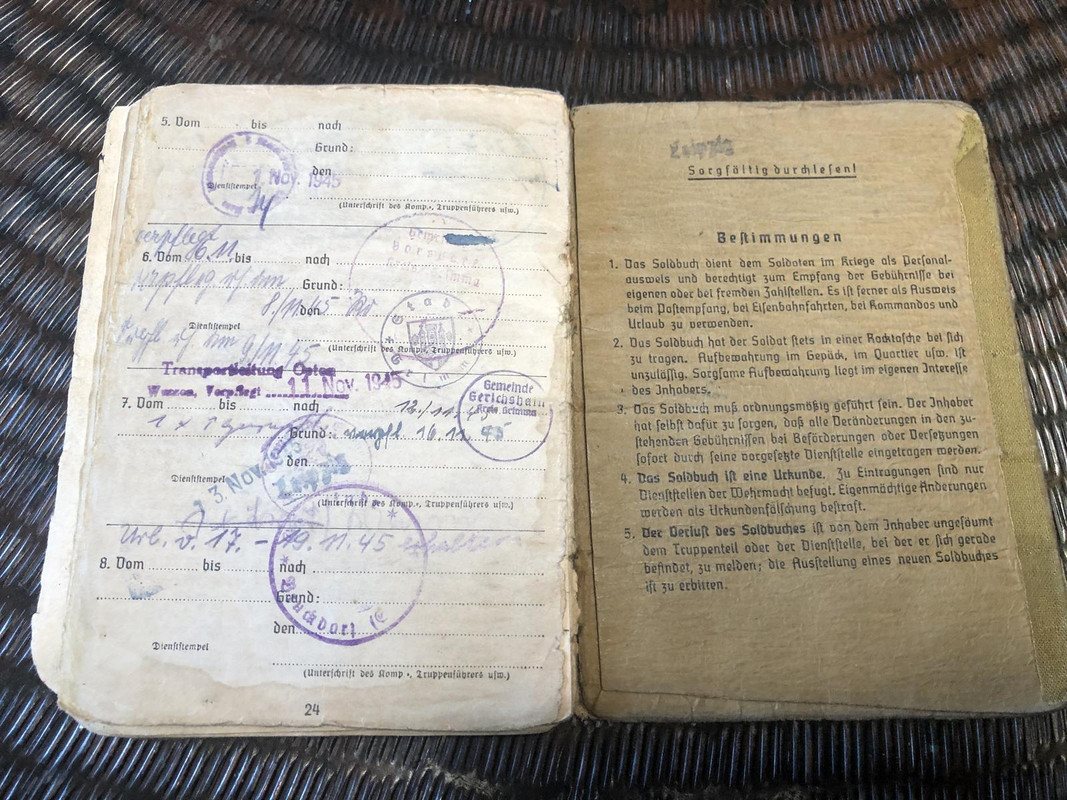 5. Vom bis nach
Grund:
den
1 Nov. 1945
Dienststempel
(Unterschrift des Komp.-, Truppenführers usw.)
verpflegt
6. Vom bis nach
16.11.
Grund:
8./11.45
den
Dienststempel
(Unterschrift des Komp.-, Truppenführers usw.)
9/11 45
Stadt
Transportleitung Osten
Wurzen, Verpflegt 11. Nov. 1945
Gemeinde
Gerichshain
Kreis Grimma
7. Vom bis nach
Grund: verpfl 16.11. 45
den
3. Nov.
Leipzig
Dienststempel
(Unterschrift des Komp.-, Truppenführers usw.)
Url. v. 17. - 19.11.45 erhalten
8. Vom bis nach
Grund:
den
Dienststempel
(Unterschrift des Komp.-, Truppenführers usw.)
24
Leipzig
Sorgfältig durchlesen!
Bestimmungen
1. Das Soldbuch dient dem Soldaten im Kriege als Personal-
ausweis und berechtigt zum Empfang der Gebührnisse bei
eigenen oder bei fremden Zahlstellen. Es ist ferner als Ausweis
beim Postempfang, bei Eisenbahnfahrten, bei Kommandos und
Urlaub zu verwenden.
2. Das Soldbuch hat der Soldat stets in einer Rocktasche bei sich
zu tragen. Aufbewahrung im Gepäck, im Quartier usw. ist
unzulässig. Sorgsame Aufbewahrung liegt im eigenen Interesse
des Inhabers.
3. Das Soldbuch muß ordnungsmäßig geführt sein. Der Inhaber
hat selbst dafür zu sorgen, daß alle Veränderungen in den zu-
stehenden Gebührnissen bei Beförderungen oder Versetzungen
sofort durch seine vorgesetzte Dienststelle eingetragen werden.
4. Das Soldbuch ist eine Urkunde. Zu Eintragungen sind nur
Dienststellen der Wehrmacht befugt. Eigenmächtige Änderungen
werden als Urkundenfälschung bestraft.
5. Der Verlust des Soldbuches ist von dem Inhaber ungesäumt
dem Truppenteil oder der Dienststelle, bei der er sich gerade
befindet, zu melden; die Ausstellung eines neuen Soldbuches
ist zu erbitten.